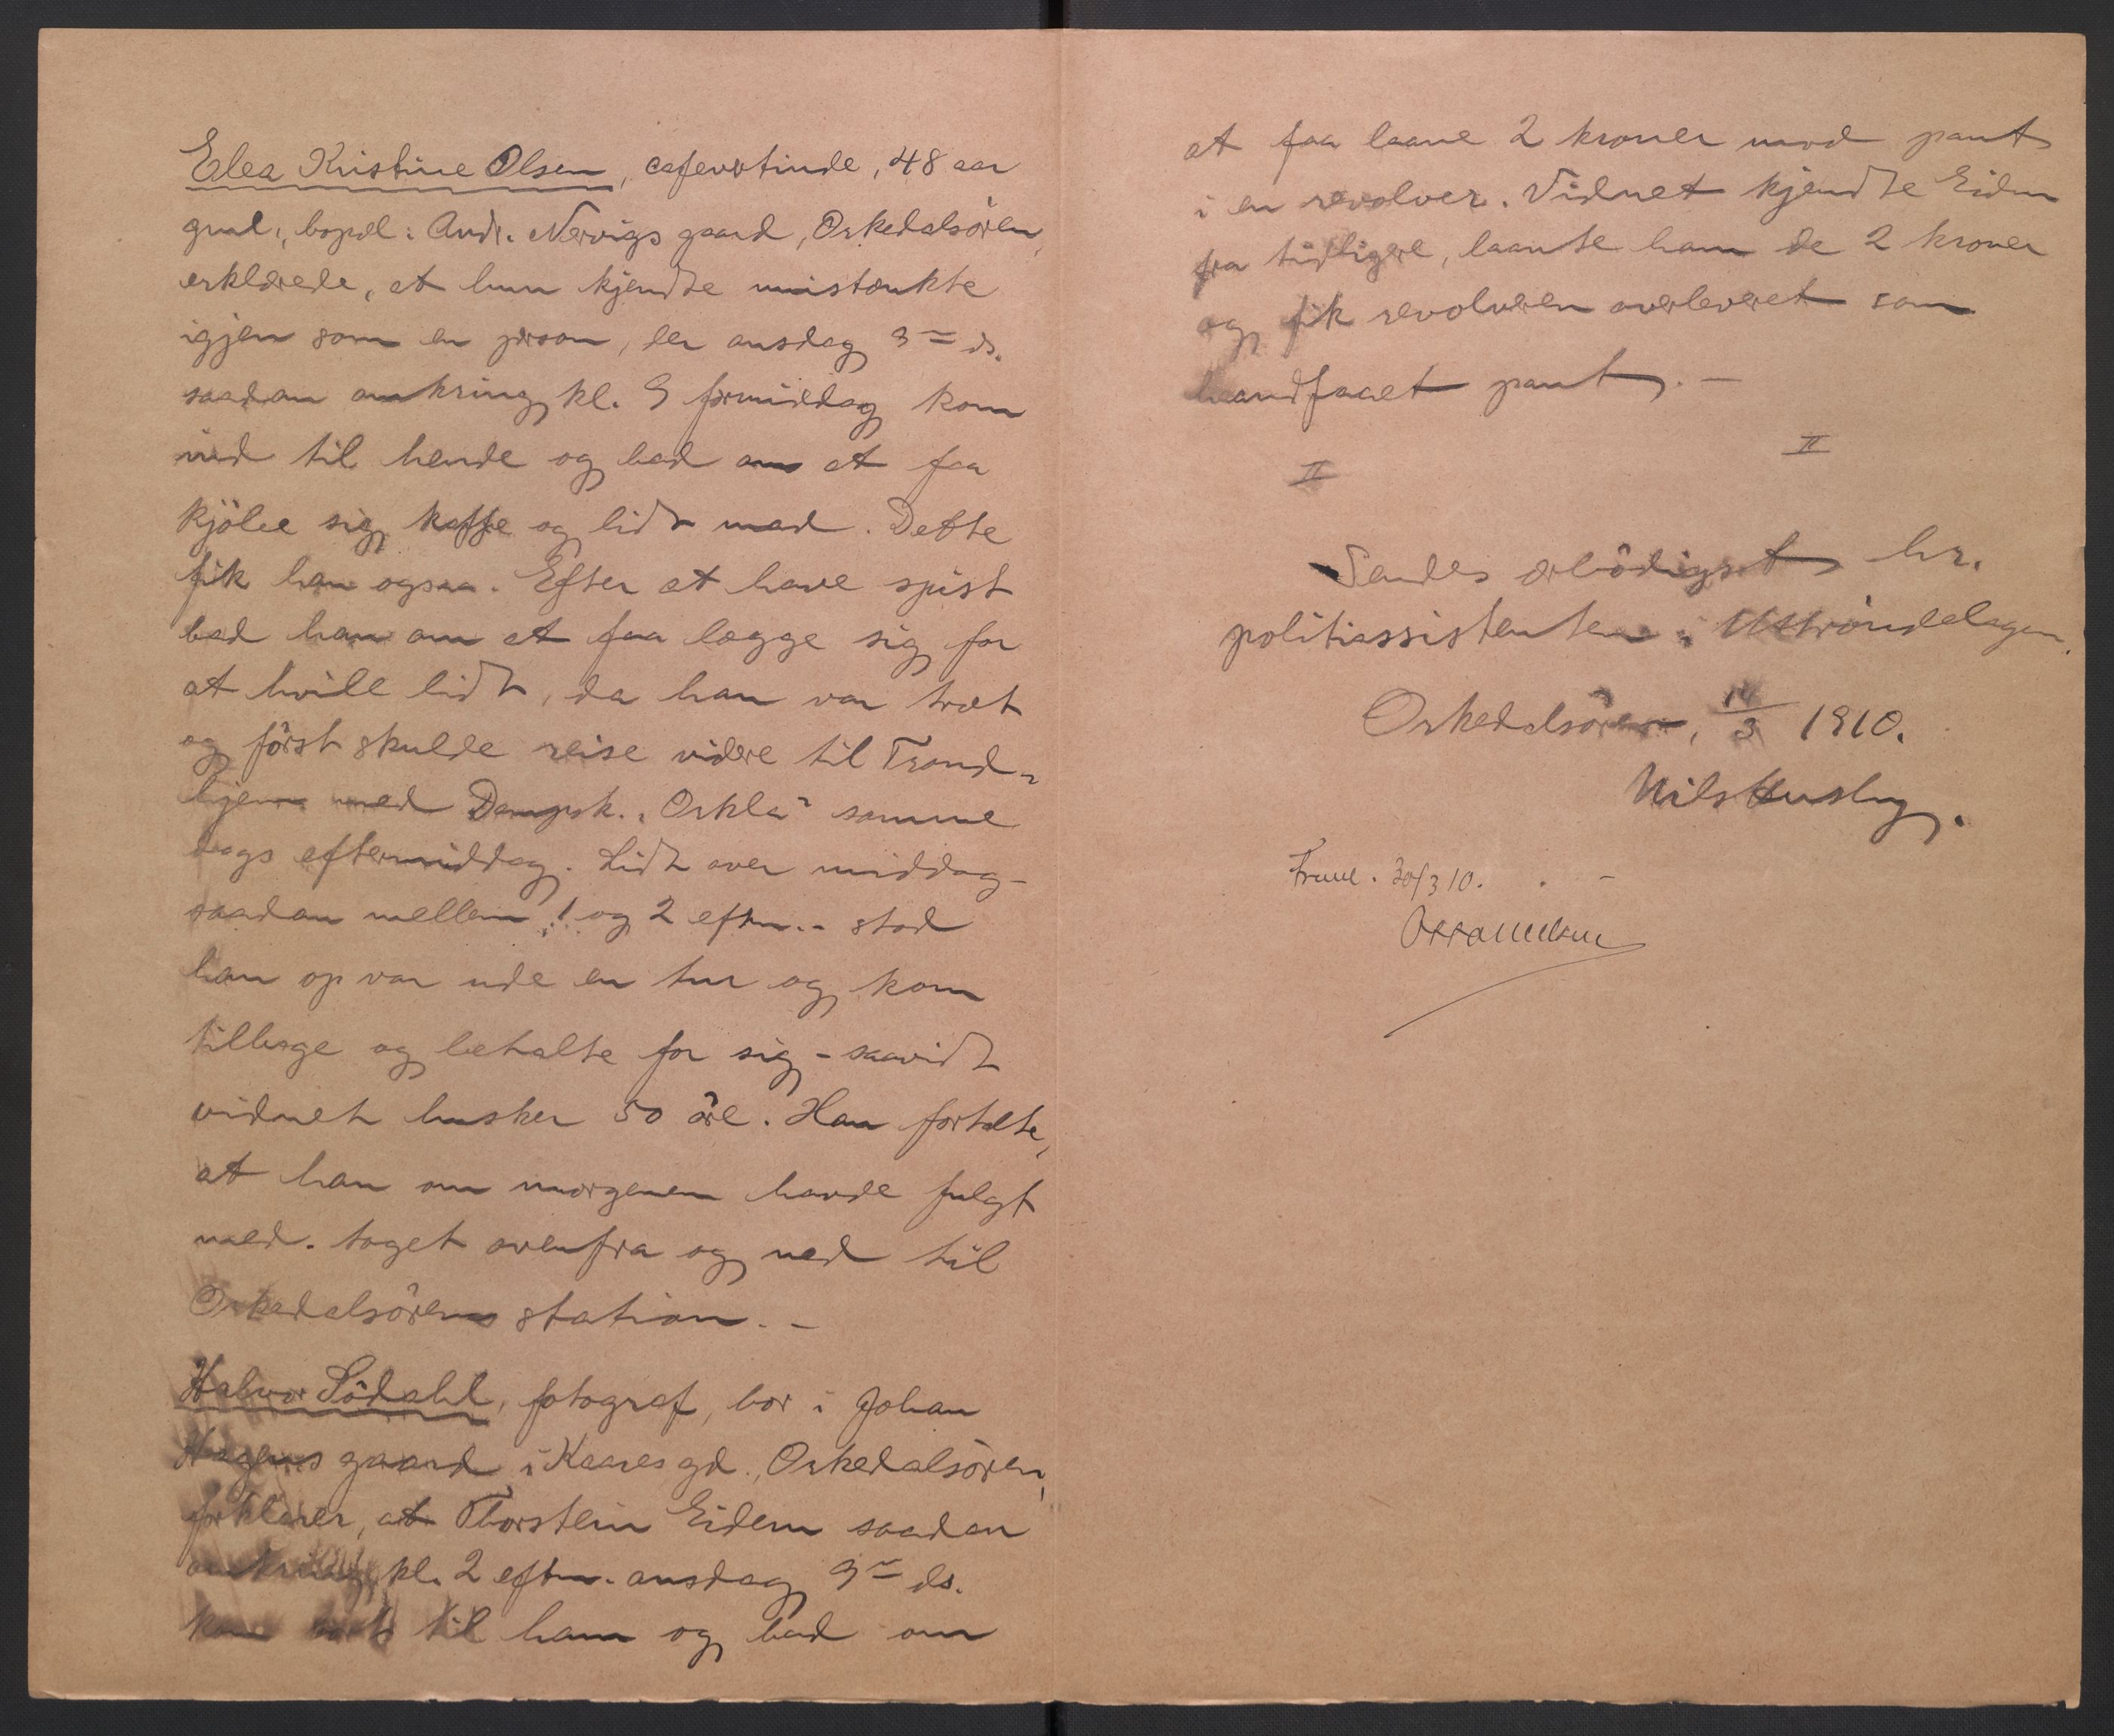 Elea Kristine Olsen, cafevertinde, 48 aar
gml., bopæl: Andr. Nervigs gaard, Orkedalsören,
erklærede, at hun kjendte mistænkte
igjen som en person, der onsdag 9de ds.
saadan omkring kl. 9 formiddag kom
ind til hende og bad om at faa
kjöbe sig kaffe og lidt mad. Dette
fik han ogsaa. Efter at have spist
bad han om at faa lægge sig for
at hvile lidt, da han var træt
og först skulde reise videre til Trond-
hjem med Dampsk. "Orkla" samme
dags eftermiddag. Lidt over middag -
saadan mellem 1 og 2 eftm. - stod
han op var ude en tur og kom
tilbage og betalte for sig - saavidt
vidnet husker 50 öre. Han fortalte,
at han om morgenen havde fulgt
med toget ovenfra og ned til
Orkedalsörens station. -
Halvor Södahl, fotograf, bor i Johan
Hagens gaard i Kaares gd., Orkedalsören,
forklarer, at Thorstein Eidem saadan
omkring kl. 2 eftm. onsdag 9de ds.
kom bort til ham og bad om
at faa laane 2 kroner mod pant
i en revolver. Vidnet kjendte Eidem
fra tidligere, laante ham de 2 kroner
og fik revolveren overleveret som
haandfaaet pant. -
II II
Sendes ærbödigst hr.
politiassistenten i Uttröndelagen.
Orkedalsören, 14/3 1910.
Nils Husby.
30/3 10.